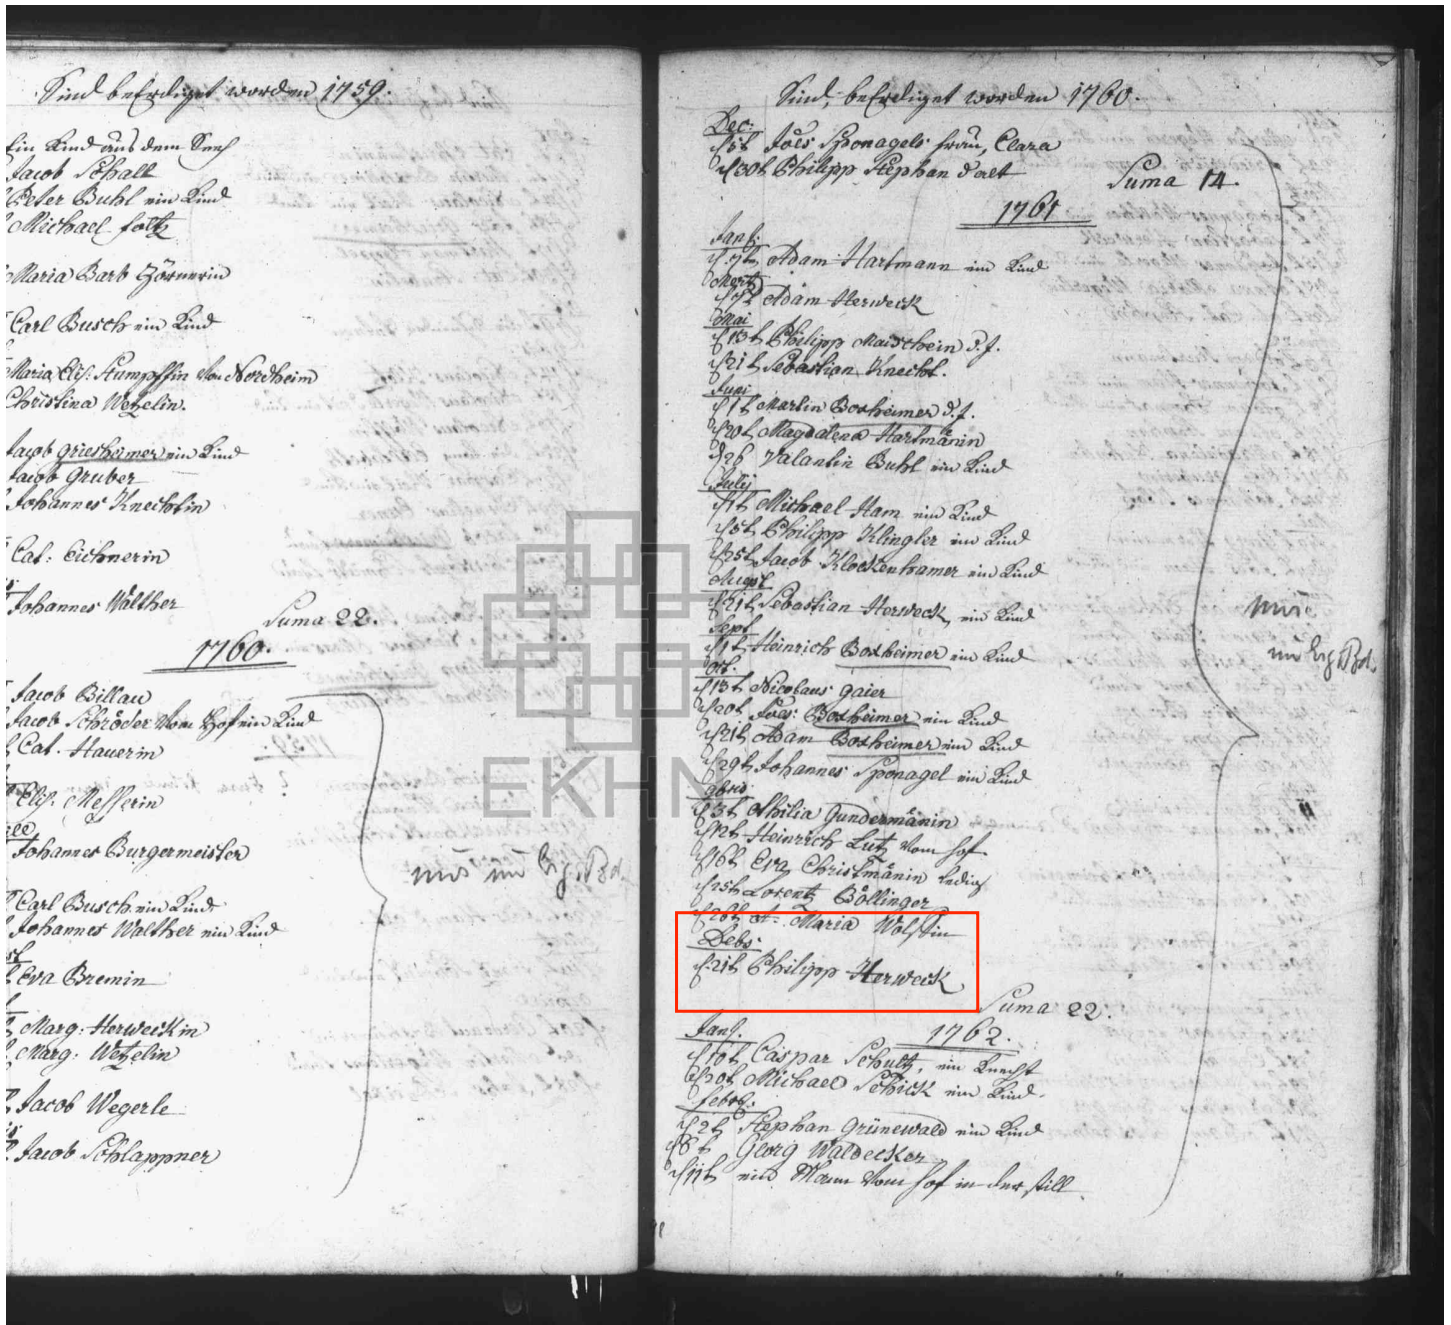 Sind beErdiget worden 1759.
Ein Kind aus dem
Jacob Schall
Peter Buhl ein Kind
Michael foltz
Maria Barb Görnerin
Carl Busch ein Kind
Maria Elis. Stumpffin von Nordheim
Christina Wetzelin.
Jacob griesheimer ein Kind
Jacob Gruber
Johannes Knechtin
Cat: Eichnerin
Johannes Walther
Suma 22.
1760.
Jacob Billau
Jacob Schröder vom Hof ein Kind
Cat. Hauerin
Elis. Messerin
Johannes Burgermeister
Carl Busch ein Kind
Johannes Walther ein Kind
Eva Bremin
Marg: Herweckin
Marg: Wetzelin
Jacob Wegerle
Jacob Schlappner
im Erg. Bd.
Sind beErdiget worden 1760.
Dec:
d 5t Joes Sponagels frau, Clara
d 30t Philipp Stephan d alt
Suma 14.
1761
Janr.
d. 7t Adam Hartmann ein Kind
Mertz
Adam Herweck
Mai
d 13t Philipp Maischein d. J.
d 21t Sebastian Knecht.
Juni
d 1t Martin Boxheimer d. J.
d 20t Magdalena Hartmänin
d 26 Valantin Buhl ein Kind
Julij
d 1t Michael Ham ein Kind
d 5t Philipp Klingler ein Kind
d 25t Jacob Klockenhamer ein Kind
Augst
d 21t Sebastian Herweck, ein Kind
Sept
d 1t Heinrich Boxheimer ein Kind
Oct.
d 13t Nicolaus gaier
d 20t Joes: Boxheimer ein Kind
d 21t Adam Boxheimer ein Kind
d 29t Johannes Sponagel ein Kind
9bris
d 3t Athilia Gundermänin
d 12t Heinrich Lutz vom hof
d 16t Eva Christmänin ledig
d 25t Lorentz Böllinger
d 26t Maria Wolffin
Debs:
d. 21t Philipp Herweck
Suma 22.
Janr.
1762.
d 10t Caspar Schultz, ein Knecht
d 20t Michael Schick ein Kind.
febr.
d 2t Stephan Grünewald ein Kind
d 8t Georg Waldecker
d 11t ein Mann vom hof in der still
im Erg. Bd.
EKHN